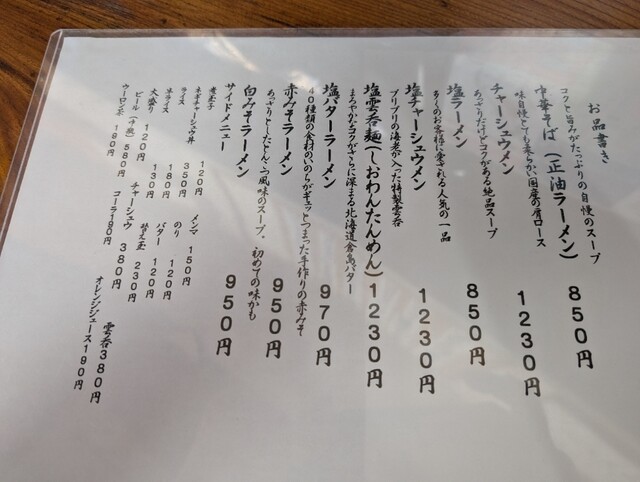 お品書き
コクと旨みがたっぷりの自慢のスープ
中華そば(正油ラーメン) 850円
味自慢とても柔らか、国産の肩ロース
チャーシュウメン 1230円
あっさりだけどコクがある絶品スープ
塩ラーメン 850円
多くのお客様に愛される人気の一品
塩チャーシュウメン 1230円
プリプリの海老が入った特製雲呑
塩雲呑麺(しおわんたんめん) 1230円
まろやか・コクがさらに深まる北海道倉島バター
塩バターラーメン 970円
40種類の食材のいのちがギュッとつまった手作りの赤みそ
赤みそラーメン 950円
あっさりとしたとんこつ風味のスープ。初めての味かも
白みそラーメン 950円
サイドメニュー
煮玉子 120円 メンマ 150円
ネギチャーシュウ丼 350円 のり 120円
ライス 180円 バター 120円
半ライス 130円 替え玉 230円
大盛り 120円 チャーシュウ 380円 雲呑 380円
ビール(中瓶) 580円 コーラ 190円 オレンジジュース 190円
ウーロン茶 180円